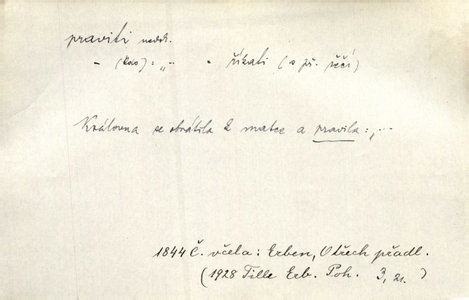 praviti nedok.
- (kdo) : „- • říkati (o př. řeči)
Královna se obrátila k matce a pravila: „...
1844 Č. včela: Erben, O třech přadl.
(1928 Tille Erb. Poh. 3, 21. )